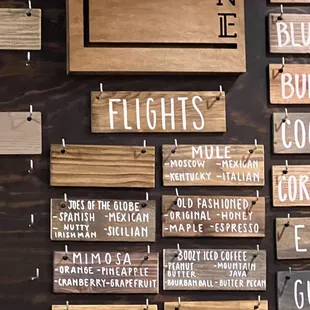 NE
FLIGHTS
MULE
-MOSCOW -MEXICAN
-KENTUCKY -ITALIAN
JOES OF THE GLOBE
-SPANISH -MEXICAN
-NUTTY IRISHMAN -SICILIAN
OLD FASHIONED
-ORIGINAL -HONEY
-MAPLE -ESPRESSO
MIMOSA
-ORANGE -PINEAPPLE
-CRANBERRY -GRAPEFRUIT
BOOZY ICED COFFEE
-PEANUT BUTTER -MOUNTAIN JAVA
-BOURBAN BALL -BUTTER PECAN
BLU
BU
COO
COR